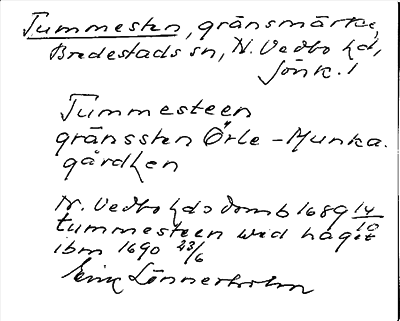 Tummesten, gränsmärke,
Bredestads sn, N. Vedbo hd,
Jönk. l
Tummesteen
gränssten Örle - Munka.
gårdhen
N. Vedbo hds domb 1689 14/10
tummesteen wed hagit
ibm 1690 23/6
Erik Lönnerholm